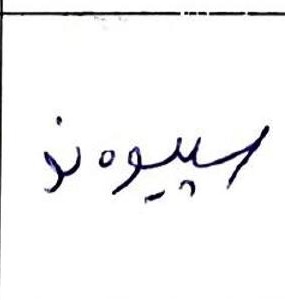 سپیوه نو